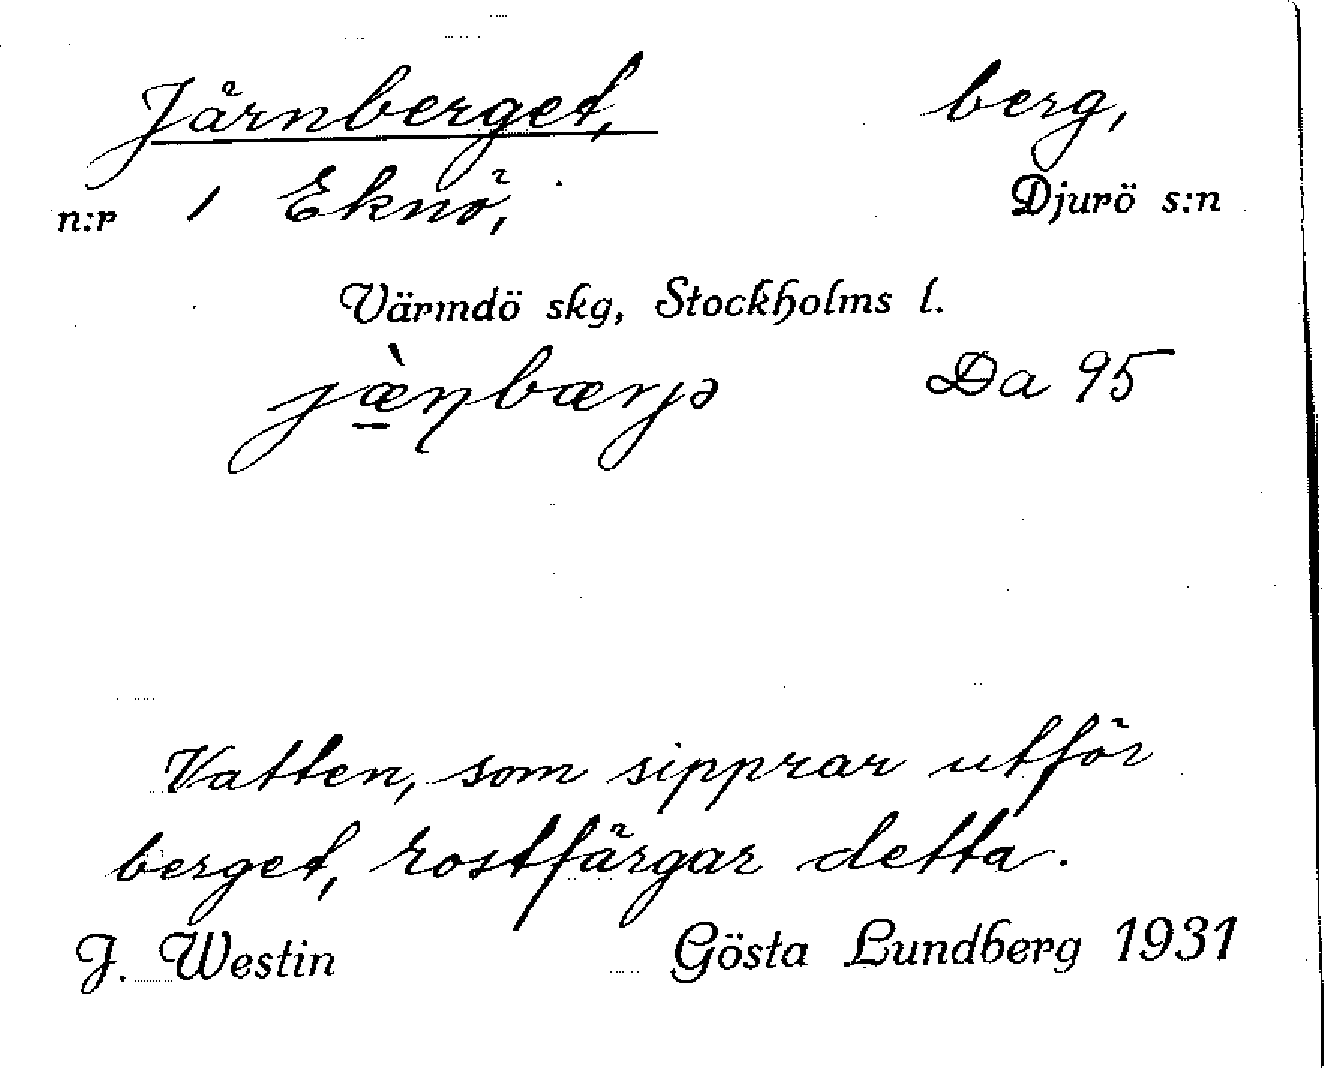 Järnberget, berg,
n:r 1 Eknö, Djurö s:n
Värmdö skg, Stockholms l.
jæ̠̀ŋbærjə Da 95
Vatten, som sipprar utför
berget, rostfärgar detta.
J. Westin Gösta Lundberg 1931